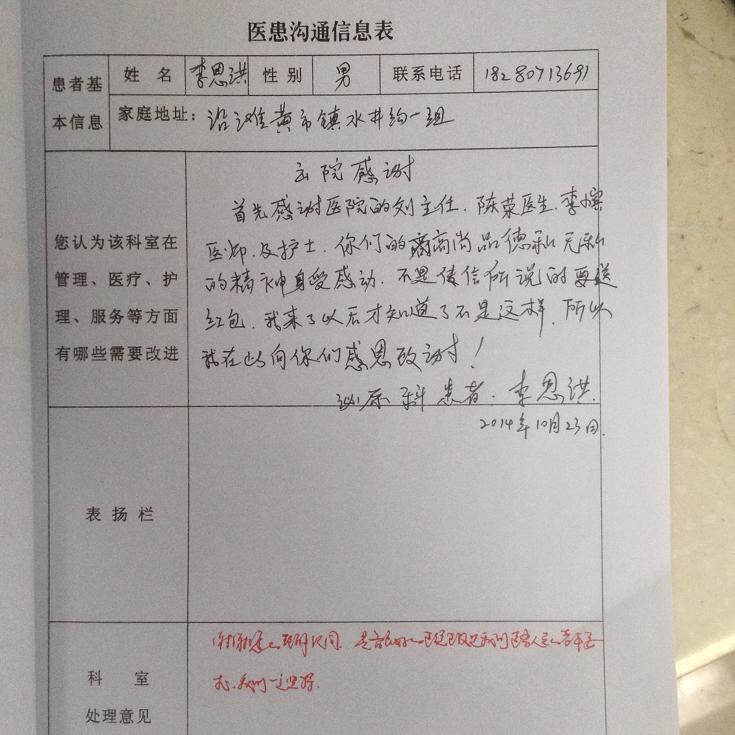 医患沟通信息表
患者基本信息
姓 名 李恩洪 性 别 男 联系电话 18280713691
家庭地址: 沿滩黄市镇水井约一组
您认为该科室在
管理、医疗、护
理、服务等方面
有哪些需要改进
去院感谢
首先感谢医院的刘主任.陈荣医生.李
医师.及护士.你们的高尚品德和无私
的精神身受感动.不是传信所说的要送
红包.我来了以后才知道了不是这样.所以
我在此向你们感恩致谢!
泌尿科患者.李恩洪.
2014年10月23日.
表扬栏
科 室
处理意见